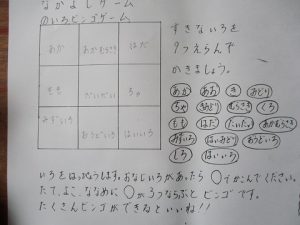 なかよしゲーム
のいろビンゴゲーム
すきないろを
9つえらんで
かきましょう。
あか あかむらさき はだ
もも だいだい ちゃ
みずいろ
おうどいろ はいいろ
あか あお き みどり
ちゃ きみどり むらさき くろ
もも はだ だいだい あかむらさき
みずいろ おうどいろ
しろ はいいろ
いろをはっぴょうします。おなじいろがあったら○でかこんでください。
たて、よこ、ななめに○が3つならぶとビンゴです。
たくさんビンゴができるといいね!!